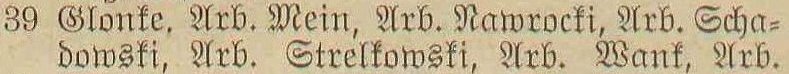 39 Glonke. Arb. Mein, Arb. Nawrocki, Arb. Scha-
dowski, Arb. Strelkowski, Arb. Wank, Arb.